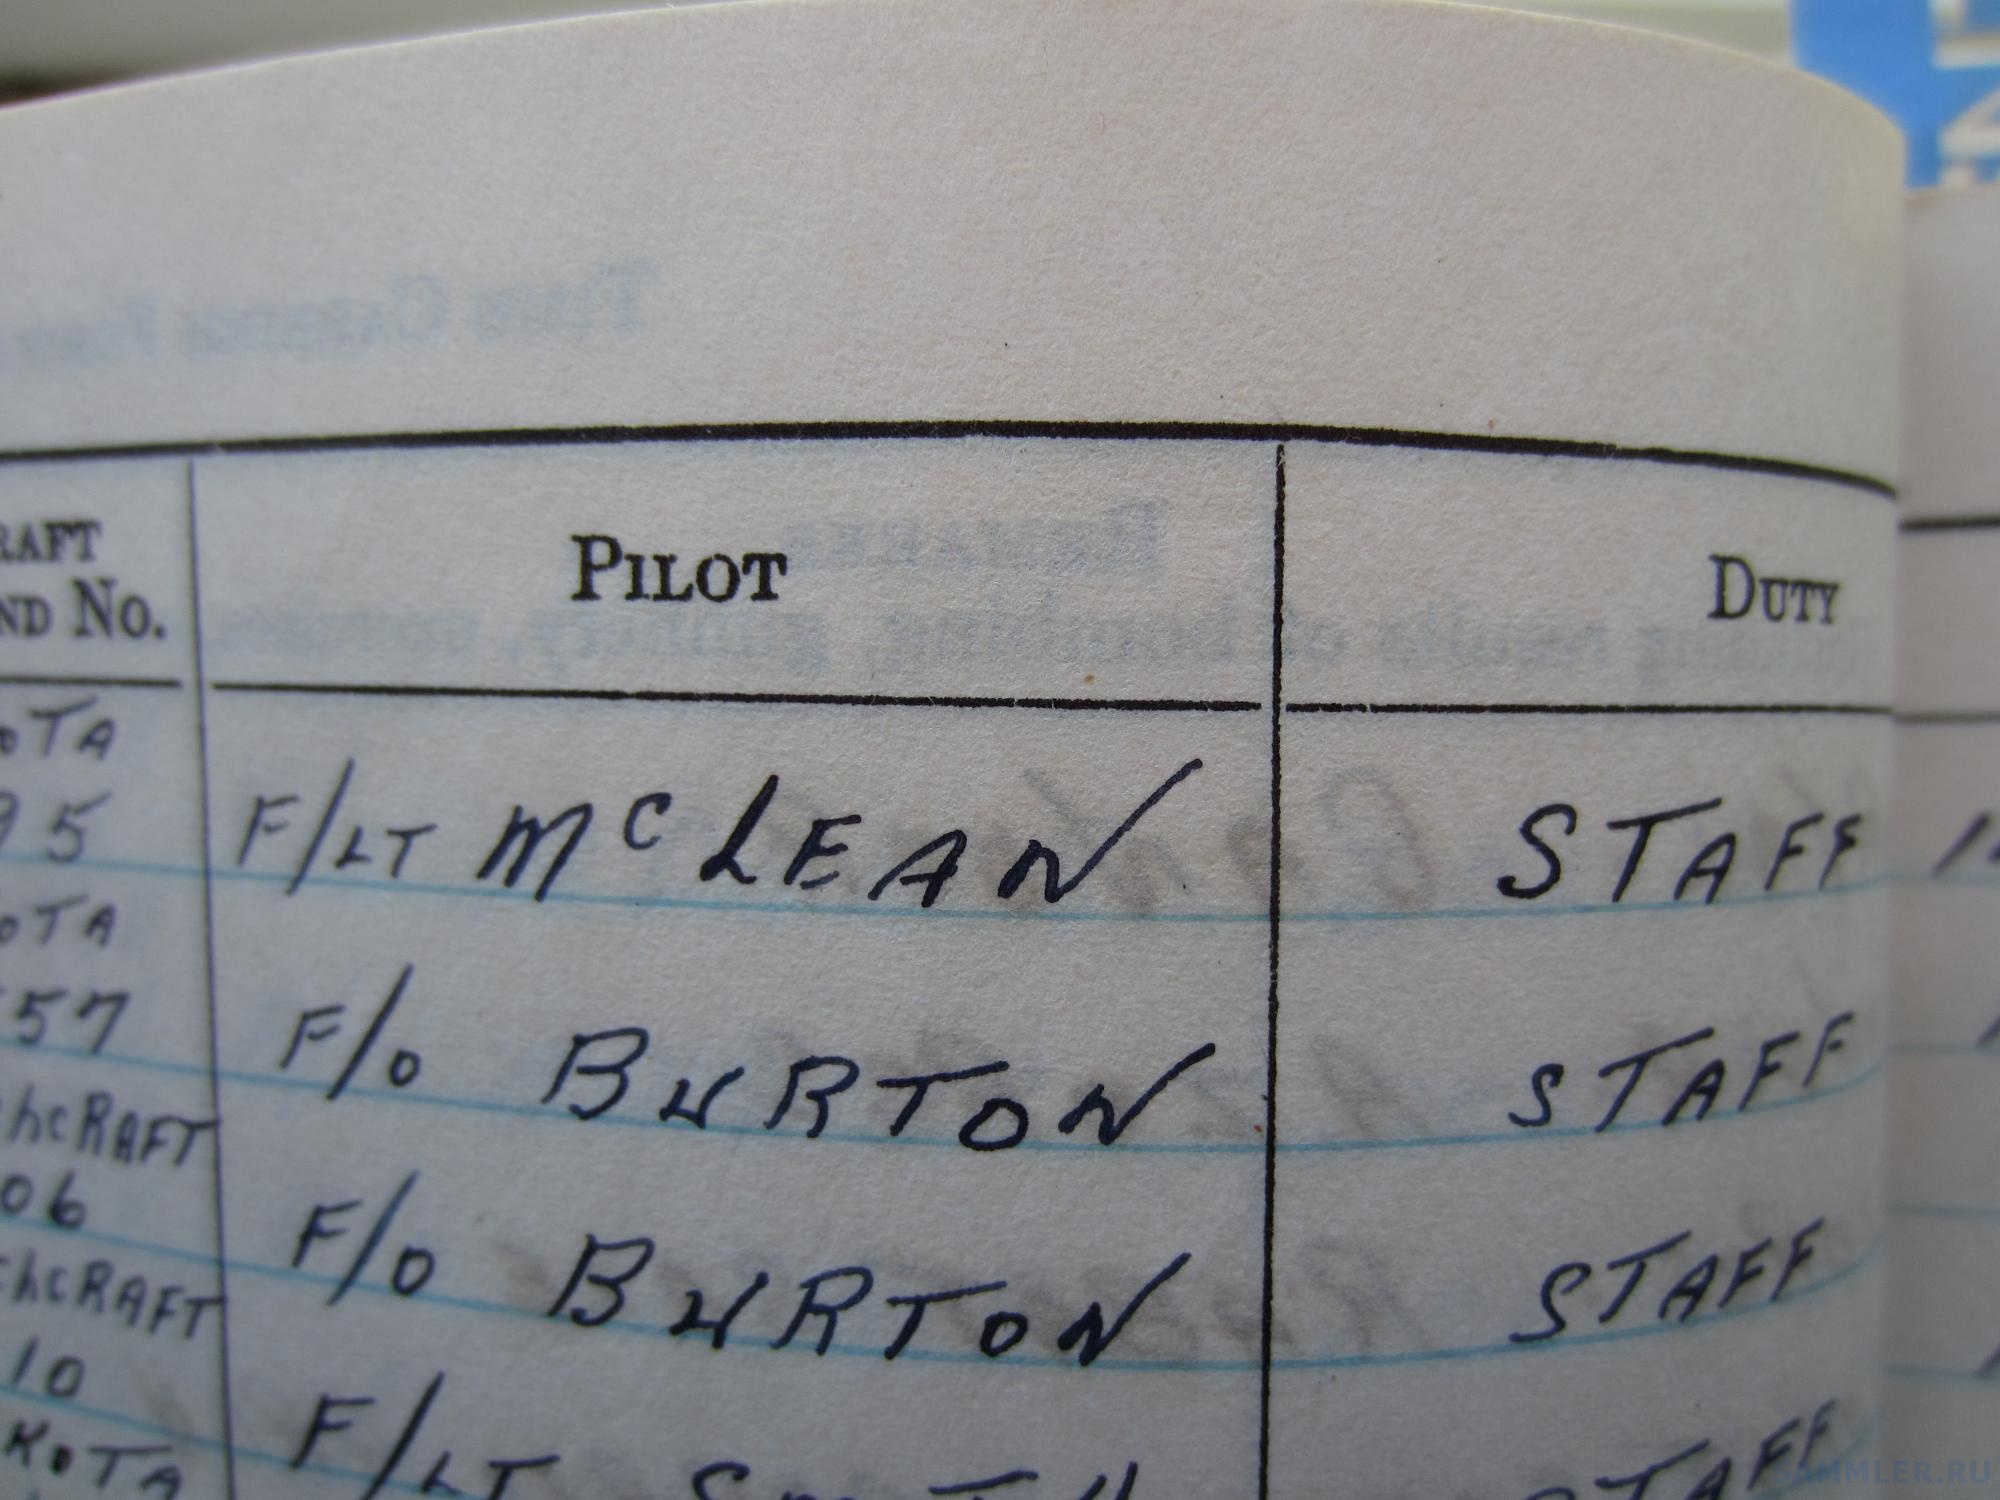 PILOT
DUTY
ND No.
OTA
95
F/LT McLEAN
STAFF
OTA
57
F/O BURTON
STAFF
hCRAFT
06
F/O BURTON
STAFF
ChCRAFT
10
F/LT
STAFF
KOTA
SAMMLER.RU